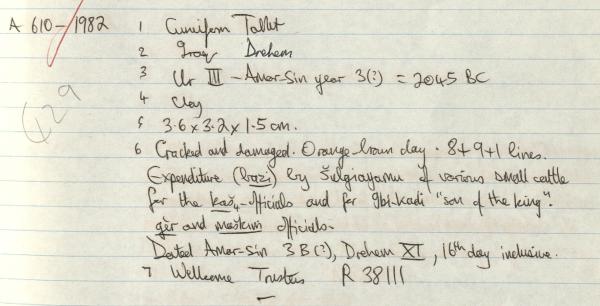 A 610-1982 1 Cuneiform Tablet
429
2 Iraq Drehem
3 Ur III - Amar-Sin year 3(?) = 2045 BC
4 Clay
5 3.6 x 3.2 x 1.5 cm.
6 Cracked and damaged. Orange-brown clay. 8+9+1 lines.
Expenditure (bazi) by Šulgiayamu of various small cattle
for the kaš₄-officials and for Ibi-kadi "son of the king".
gèr and maškim officials.
Dated Amar-Sin 3 B(?), Drehem XI, 16th day inclusive.
7 Wellcome Trustees R 38111